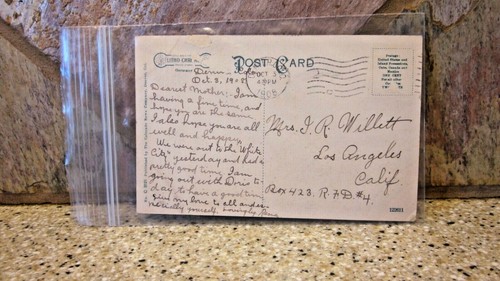 POST CARD
Denver, Colo.
Oct 3, 1908
Dearest Mother: I am
having a fine time, and
hope you are the same.
I also hope you are all
well and happy.
We were out to the "White
City" yesterday and had a
pretty good time. I am
going out with Doris to-
day, to have a good time.
Give my love to all and
yourself, lovingly,
OCT 3
1908
Mrs. J. R. Willett
Los Angeles
Calif.
Box 423, R.F.D. #4,